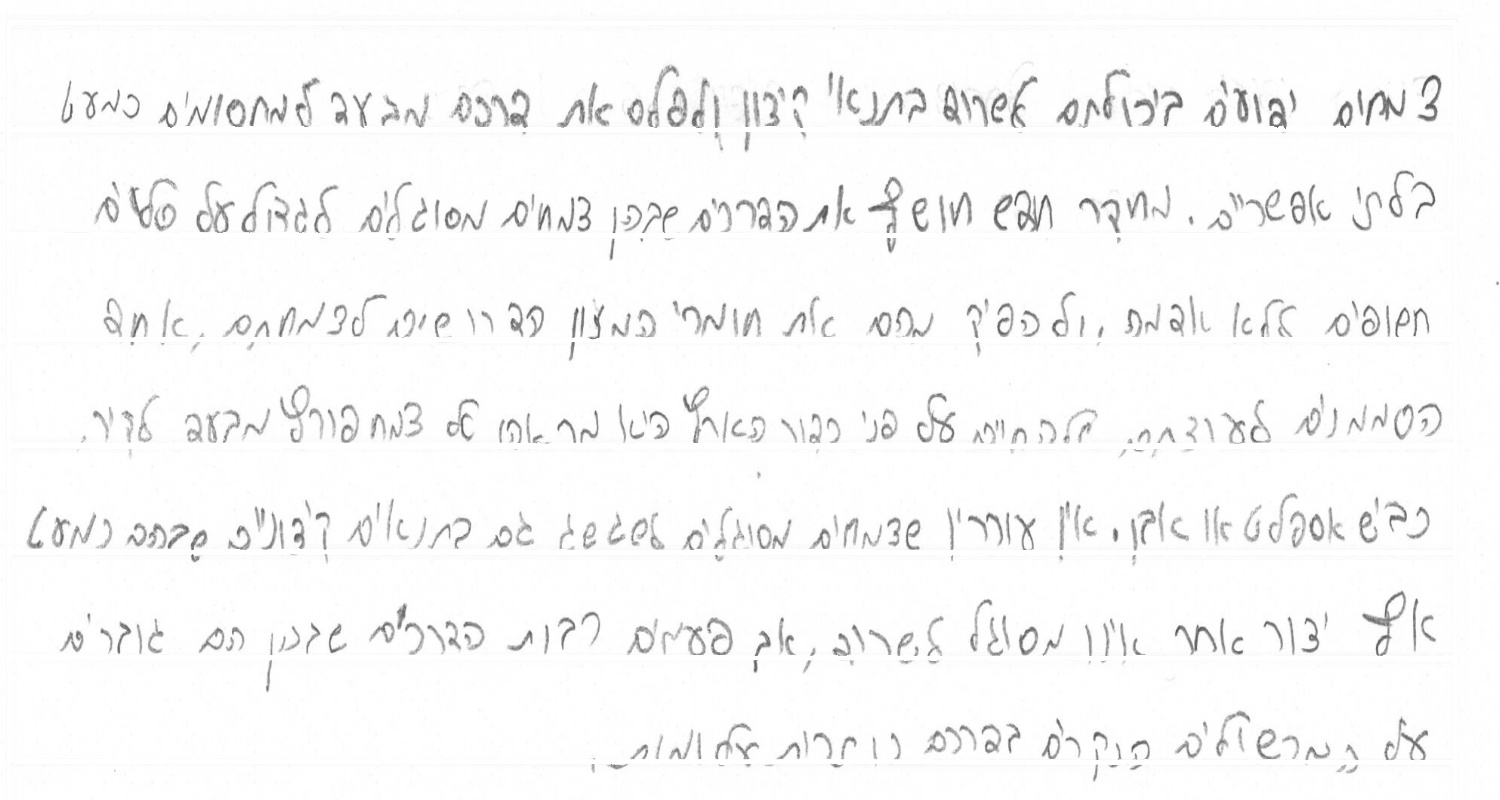 צמחים ידועים ביכולתם לשרוד בתנאי קיצון ולפלס את דרכם מבעד למחסומים כמעט
בלתי אפשריים. מחקר חדש חושף את הדרכים שבהן צמחים מסוגלים לגדול על סלעים
חשופים ללא אדמה, ולהפיק מהם את חומרי המזון הדרושים לצמחתם, אחד
הסממנים לעוצמתם, בלהחיות על פני כדור הארץ היא מראהו של צמח פורץ מבעד לקיר,
כביש אספלט או אבן. אין עוררין שצמחים מסוגלים לשגשג גם בתנאים קיצוניים שבהם כמעט
אף יצור אחר אינו מסוגל לשרוד, אך פעמים רבות הדרכים שבהן הם גוברים
על המכשולים הנקרים בדרכם נותרות עלומות.